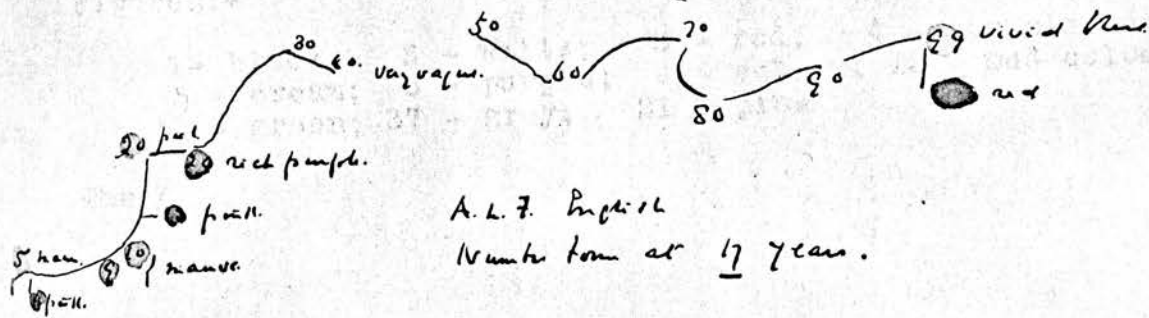 50
70
99 vivid blue.
30
40. very vague.
60
90
80
red
20
20 rich purple.
A. L. F. English
Number form at 17 years.
5
9
10
mauve.